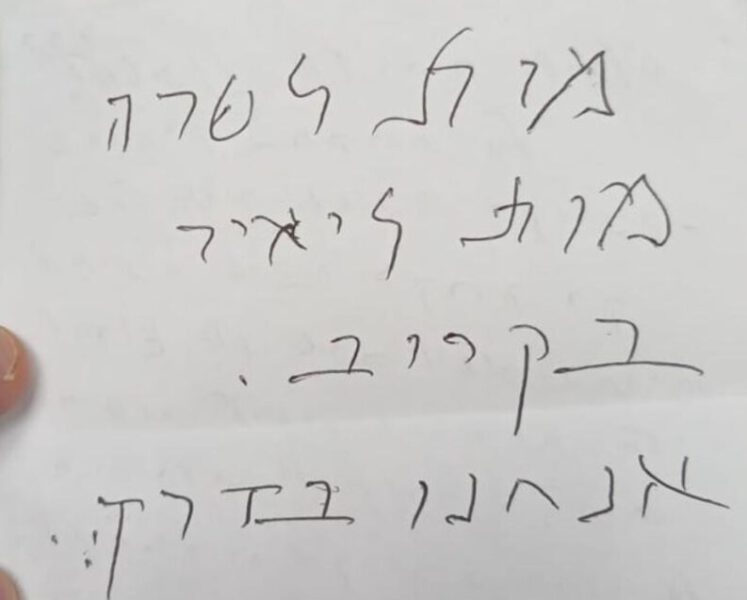 מות לשרה
מות ליאיר
בקרוב.
אנחנו בדרך...